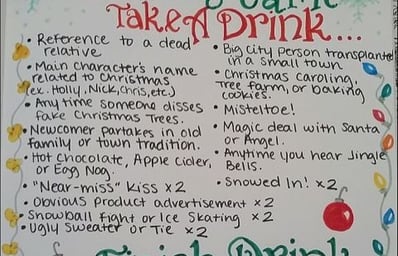 Take A Drink...
• Reference to a dead
relative
• Main character's name
related to Christmas
(ex. Holly, Nick, Chris, etc.)
• Any time someone disses
fake Christmas Trees.
• Newcomer partakes in old
family or town tradition.
• Hot chocolate, Apple Cider,
or Egg Nog.
• "Near-miss" kiss x2
• Obvious product advertisement x2
• Snowball fight or Ice Skating x2
• Ugly Sweater or Tie x2
• Big city person transplanted
in a small town
• Christmas caroling,
Tree farm, or baking
cookies.
• Misteltoe!
• Magic deal with Santa
or Angel.
• Anytime you hear Jingle
Bells.
• Snowed In! x2